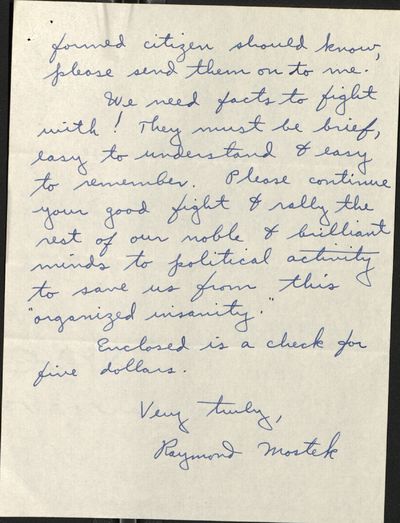 formed citizen should know,
please send them on to me.
We need facts to fight
with! They must be brief,
easy to understand & easy
to remember. Please continue
your good fight & rally the
rest of our noble & brilliant
minds to political activity
to save us from this
"organized insanity."
Enclosed is a check for
five dollars.
Very truly,
Raymond Mostek